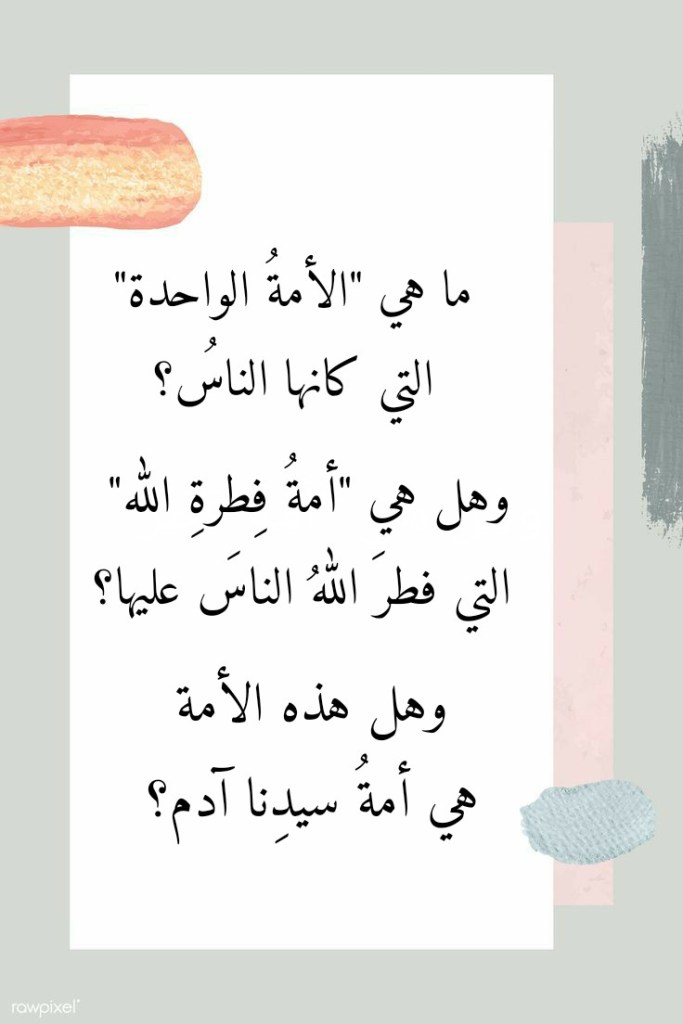 ما هي "الأمةُ الواحدة"
التي كانها الناسُ؟
وهل هي "أمةُ فِطرةِ الله"
التي فطرَ اللهُ الناسَ عليها؟
وهل هذه الأمة
هي أمةُ سيدِنا آدم؟
rawpixel